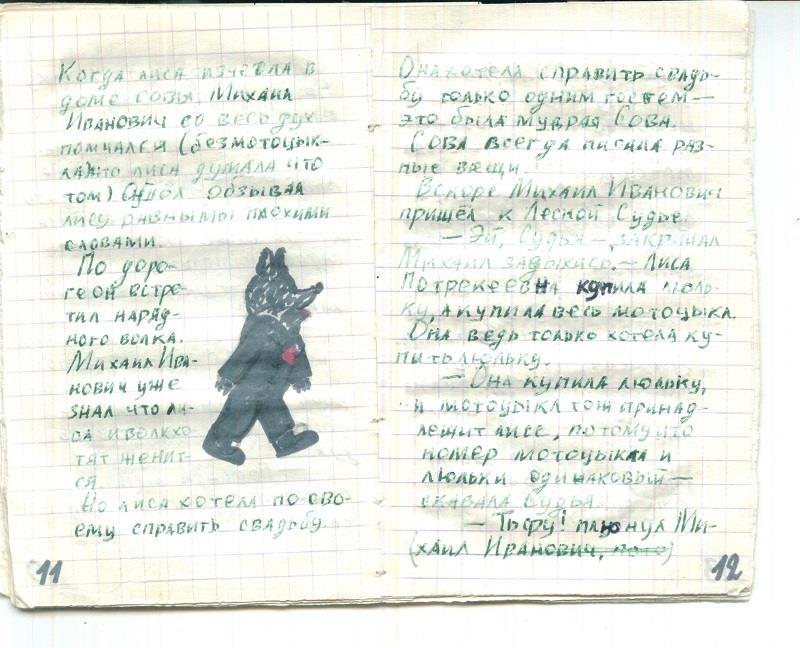 Когда лиса изчезла в
доме совы, Михаил
Иванович со весь дух
помчался (безмотоцык-
ла)но лиса думала что
том) обзывая
лису разными плохими
словами.
По доро-
ге он встре-
тил наряд-
ного волка.
Михаил Ива-
нович уже
знал что ли-
са и волк хо-
тят женит-
ся.
Но лиса хотела по сво-
ему справить свадьбу.
11
Она хотела справить свадь-
бу только одним гостем —
это была мудрая Сова.
Сова всегда писала раз-
ные вещи.
Вскоре Михаил Иванович
пришёл к Лесной Судье.
— Эй, Судья —, закричал
Михаил задыхись. — Лиса
Потрекеевна купила люль-
ку, а купила весь мотоцыкл.
Она ведь только хотела ку-
пить люльку.
— Она купила люльку,
и мотоцыкл тож принад-
лежит лисе, потому что
номер мотоцыкла и
люльки одинаковый —
сказала Судья.
— Тьфу! плюнул Ми-
(хаил Иванович, пото)
12